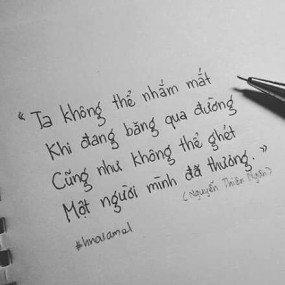 “ Ta không thể nhắm mắt
Khi đang băng qua đường
Cũng như không thể ghét
Một người mình đã thương. ”
( Nguyễn Thiên Ngân )